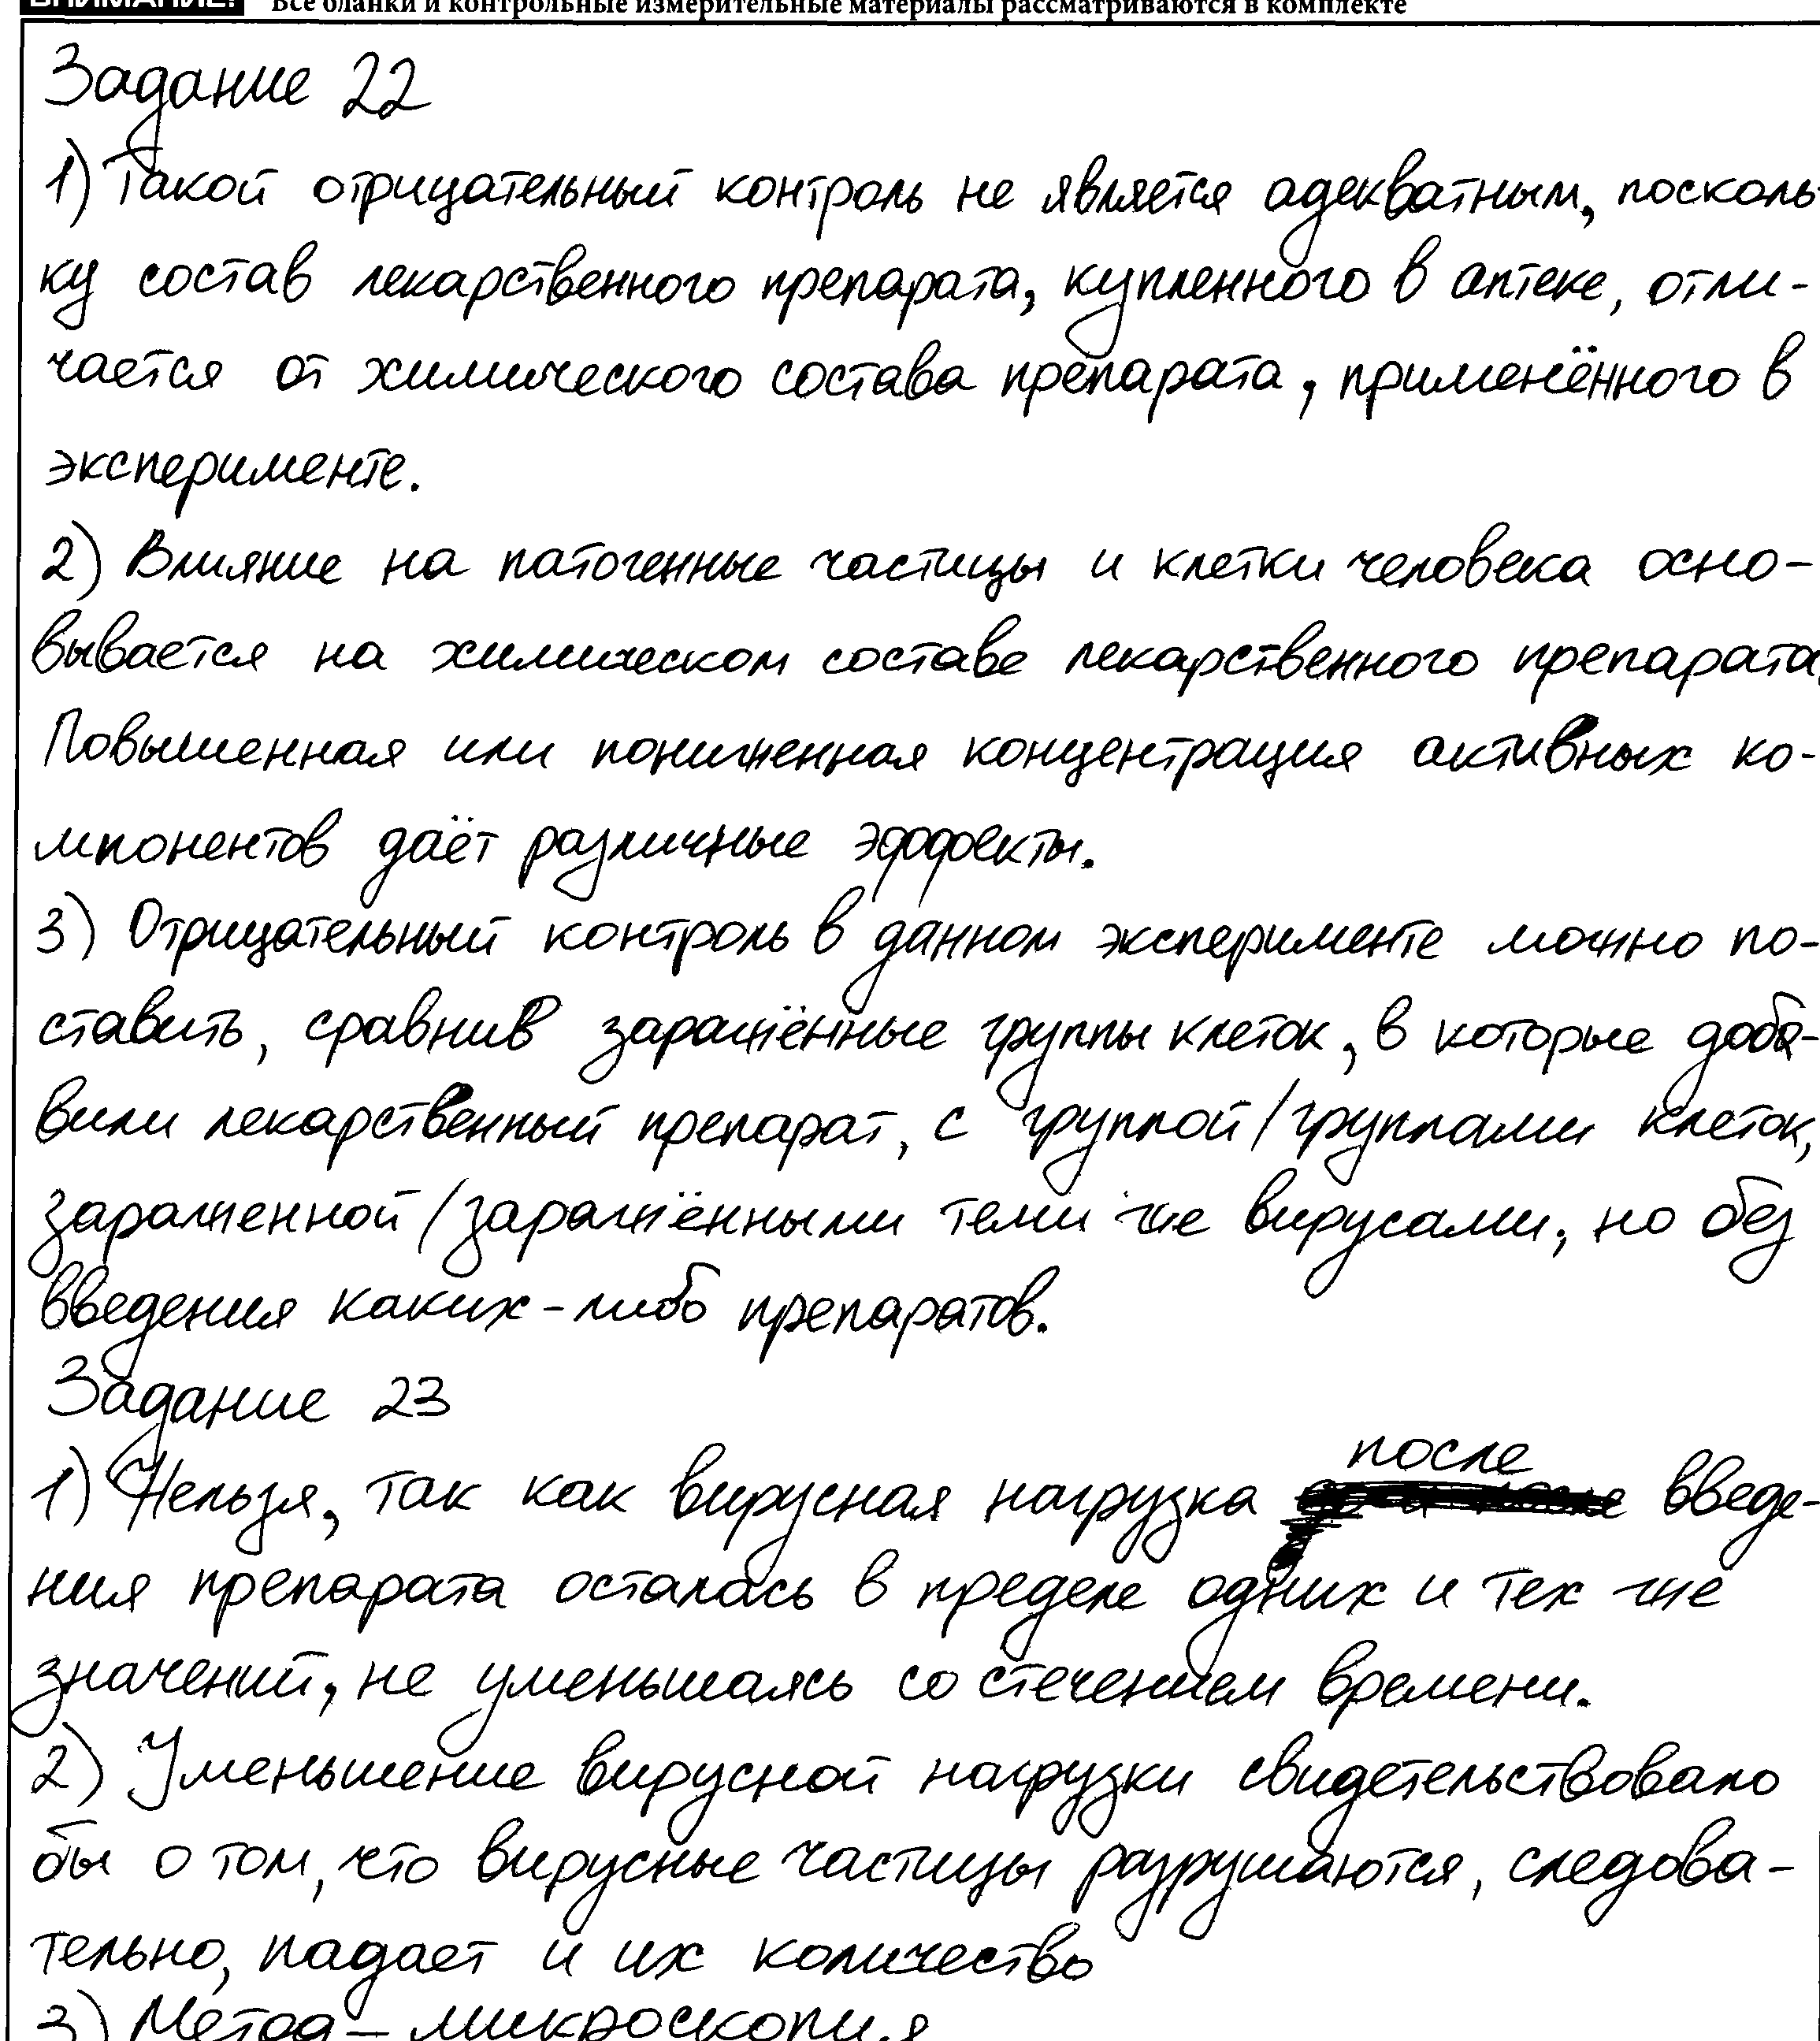 ВНИМАНИЕ! Все бланки и контрольные измерительные материалы рассматриваются в комплекте
Задание 22
1) Такой отрицательный контроль не является адекватным, посколь-
ку состав лекарственного препарата, купленного в аптеке, отли-
чается от химического состава препарата, применённого в
эксперименте.
2) Влияние на патогенные частицы и клетки человека осно-
вывается на химическом составе лекарственного препарата.
Повышенная или пониженная концентрация активных ко-
мпонентов даёт различные эффекты.
3) Отрицательный контроль в данном эксперименте можно по-
ставить, сравнив заражённые группы клеток, в которые доба-
вили лекарственный препарат, с группой/группами клеток,
зараженной/заражёнными теми же вирусами, но без
введения каких-либо препаратов.
Задание 23
1) Нельзя, так как вирусная нагрузка после введе-
ния препарата осталась в пределе одних и тех же
значений, не уменьшаясь со стечением времени.
2) Уменьшение вирусной нагрузки свидетельствовало
бы о том, что вирусные частицы разрушаются, следова-
тельно, падает и их количество
3) Метод – микроскопия